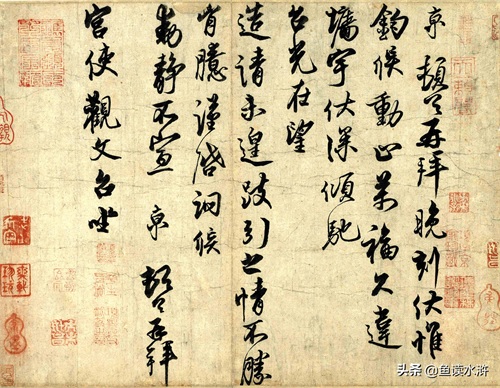 京 頓首再拜晚刻伏惟
鈞候動止萬福久違
墻宇伏深傾馳
台光在望
造請未遑跂引之情不勝
胷臆謹啓詞候
動靜不宣 京 頓首再拜
宮使觀文台坐
头条 @鱼读水浒